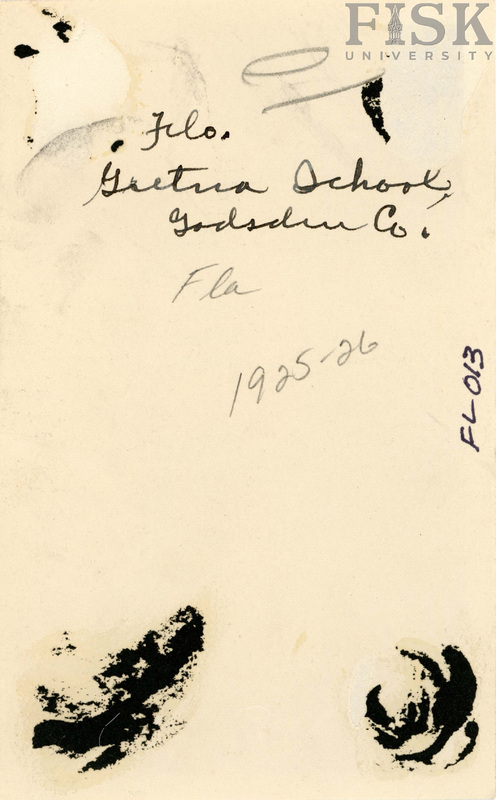 FISK
UNIVERSITY
Flo.
Gretna School,
Gadsden Co.
Fla
1925-26
FL-013